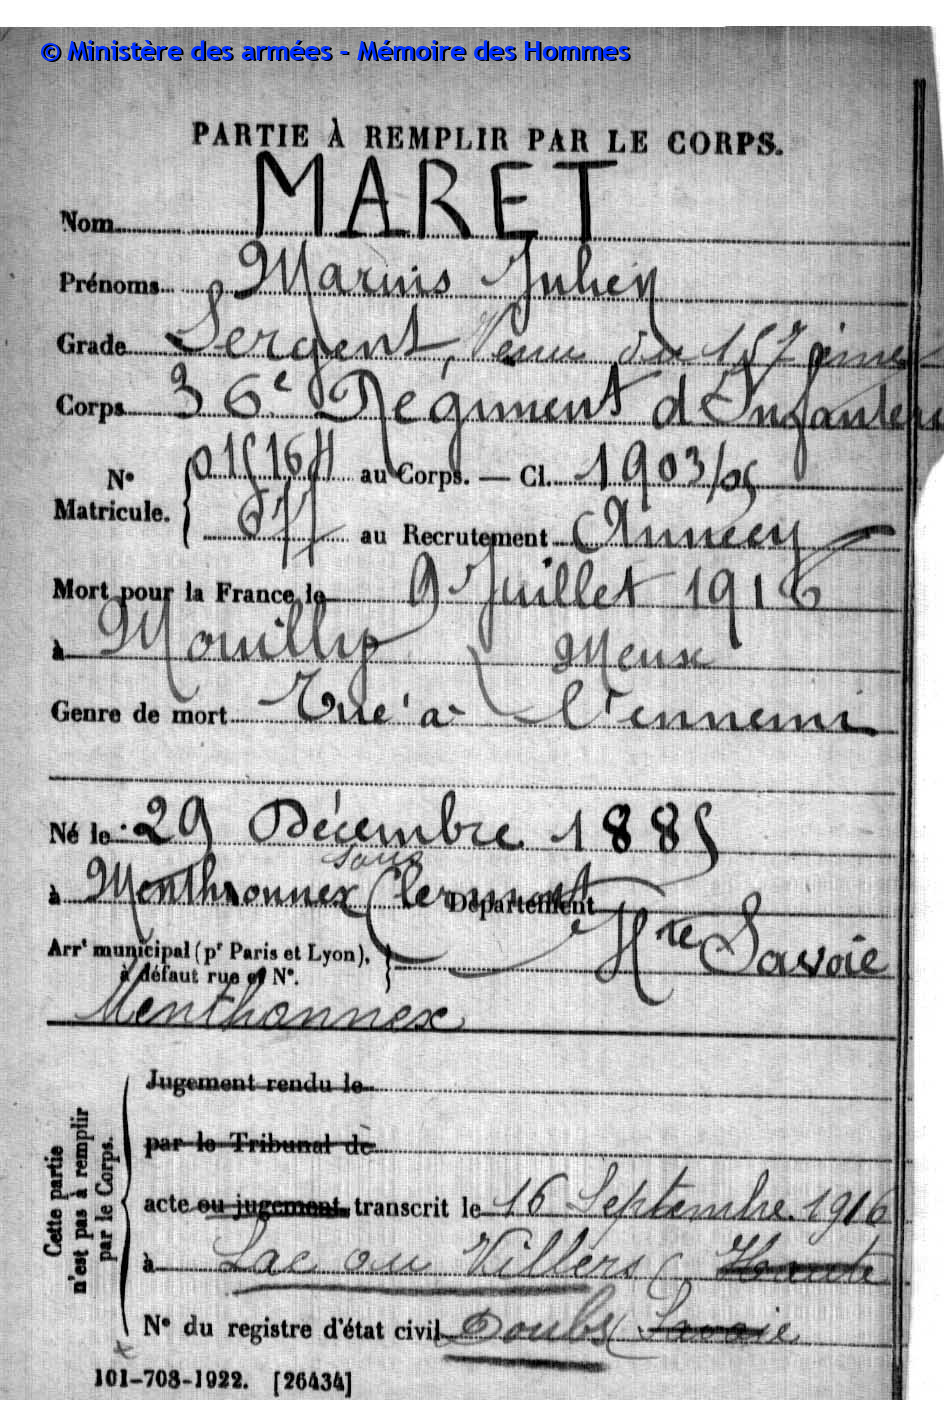 © Ministère des armées - Mémoire des Hommes
PARTIE À REMPLIR PAR LE CORPS.
Nom MARET
Prénoms Marius Julien
Grade Sergent, Venu du 157ème
Corps 36e Régiment d'Infanterie
N° Matricule. { 01516H au Corps. — Cl. 1903/05
677 au Recrutement Annecy
Mort pour la France le 9 Juillet 1916
à Mouilly Meuse
Genre de mort Tué à l'ennemi
Né le 29 Décembre 1885
sous
à Menthonnex Clermont Département Hte Savoie
Arrt municipal (pr Paris et Lyon), à défaut rue et N°. }
Menthonnex
Cette partie n'est pas à remplir par le Corps.
Jugement rendu le
par le Tribunal de
acte ou jugement transcrit le 16 Septembre 1916
à Lac ou Villers (Haute
N° du registre d'état civil Doubs (Savoie
101-708-1922. [26434]